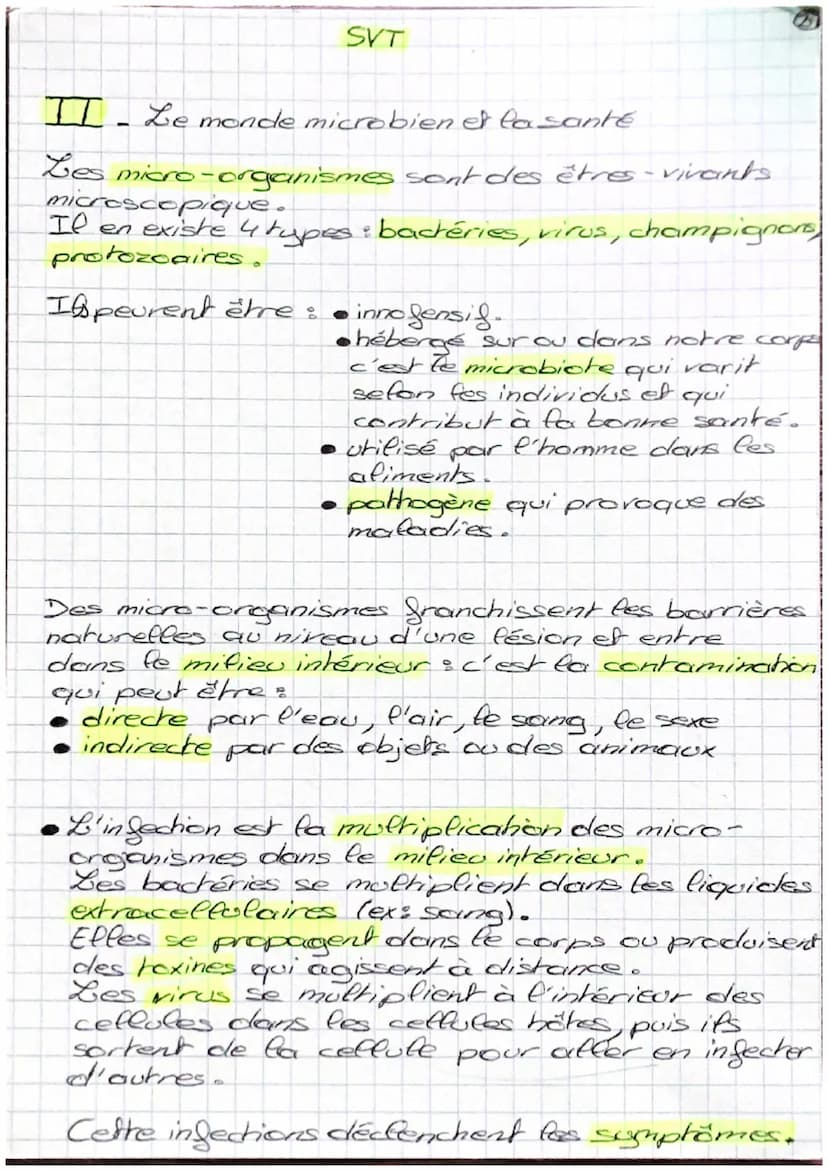 SVT
II - Le monde microbien et la santé
Les micro-organismes sont des êtres-vivants
microscopique.
Il en existe 4 types : bactéries, virus, champignons,
protozoaires.
Ils peuvent être : • innofensif.
• hébergé sur ou dans notre corps
c'est le microbiote qui varit
selon les individus et qui
contribut à la bonne santé.
• utilisé par l'homme dans les
aliments.
• pathogène qui provoque des
maladies.
Des micro-organismes franchissent les barrières
naturelles au niveau d'une lésion et entre
dans le milieu intérieur : c'est la contamination
qui peut être :
• directe par l'eau, l'air, le sang, le sexe
• indirecte par des objets ou des animaux
• L'infection est la multiplication des micro-
organismes dans le milieu intérieur.
Les bactéries se multiplient dans les liquides
extracellulaires (ex: sang).
Elles se propagent dans le corps ou produisent
des toxines qui agissent à distance.
Les virus se multiplient à l'intérieur des
cellules dans les cellules hôtes, puis ils
sortent de la cellule pour aller en infecter
d'autres.
Cette infections déclenchent les symptômes.